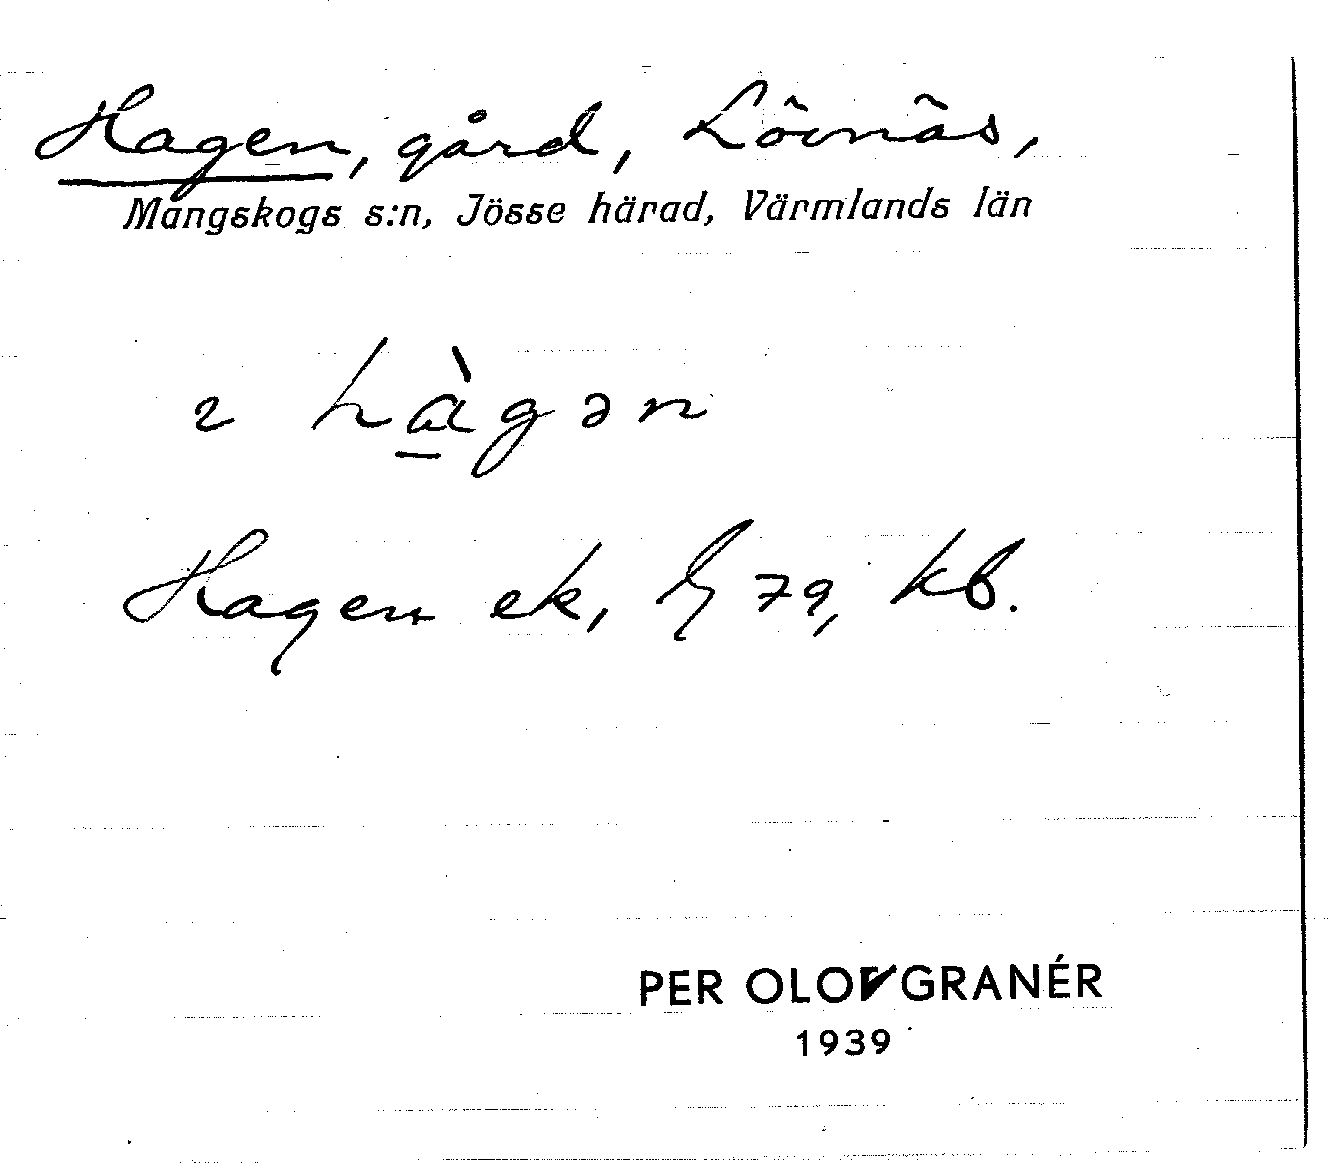 Hagen, gård, Lövnäs,
Mangskogs s:n, Jösse härad, Värmlands län
hàgən
Hagen ek, 79, kb.
PER OLOV GRANÉR
1939